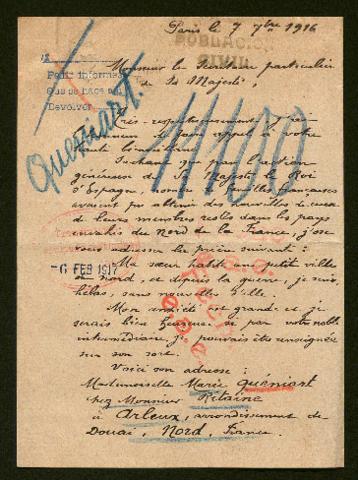 Paris le 7 7bre 1916
POBLACION
CIVIL
Monsieur le Secrétaire particulier
de Sa Majesté,
Pedir informes
Devolver
Quéniart.
11100
Très respectueusement, j'ai
l'honneur de faire appel à votre
haute bienveillance.
Sachant que par l'action
généreuse de Sa Majesté le Roi
d'Espagne, nombre de familles françaises
avaient pu obtenir des nouvelles de ceux
de leurs membres restés dans les pays
envahis du Nord de la France, j'ose
vous adresser la prière suivante :
-6 FEB 1917
Ma sœur habite une petite ville
du Nord, et depuis la guerre, je suis,
hélas, sans nouvelles d'elle.
Mon anxiété est grande et je
serais bien heureuse si par votre noble
intermédiaire, je pouvais être renseignée
sur son sort.
Voici son adresse :
Mademoiselle Marie Quéniart
chez Monsieur Ritaine
à Arleux, arrondissement de
Douai, Nord, France.